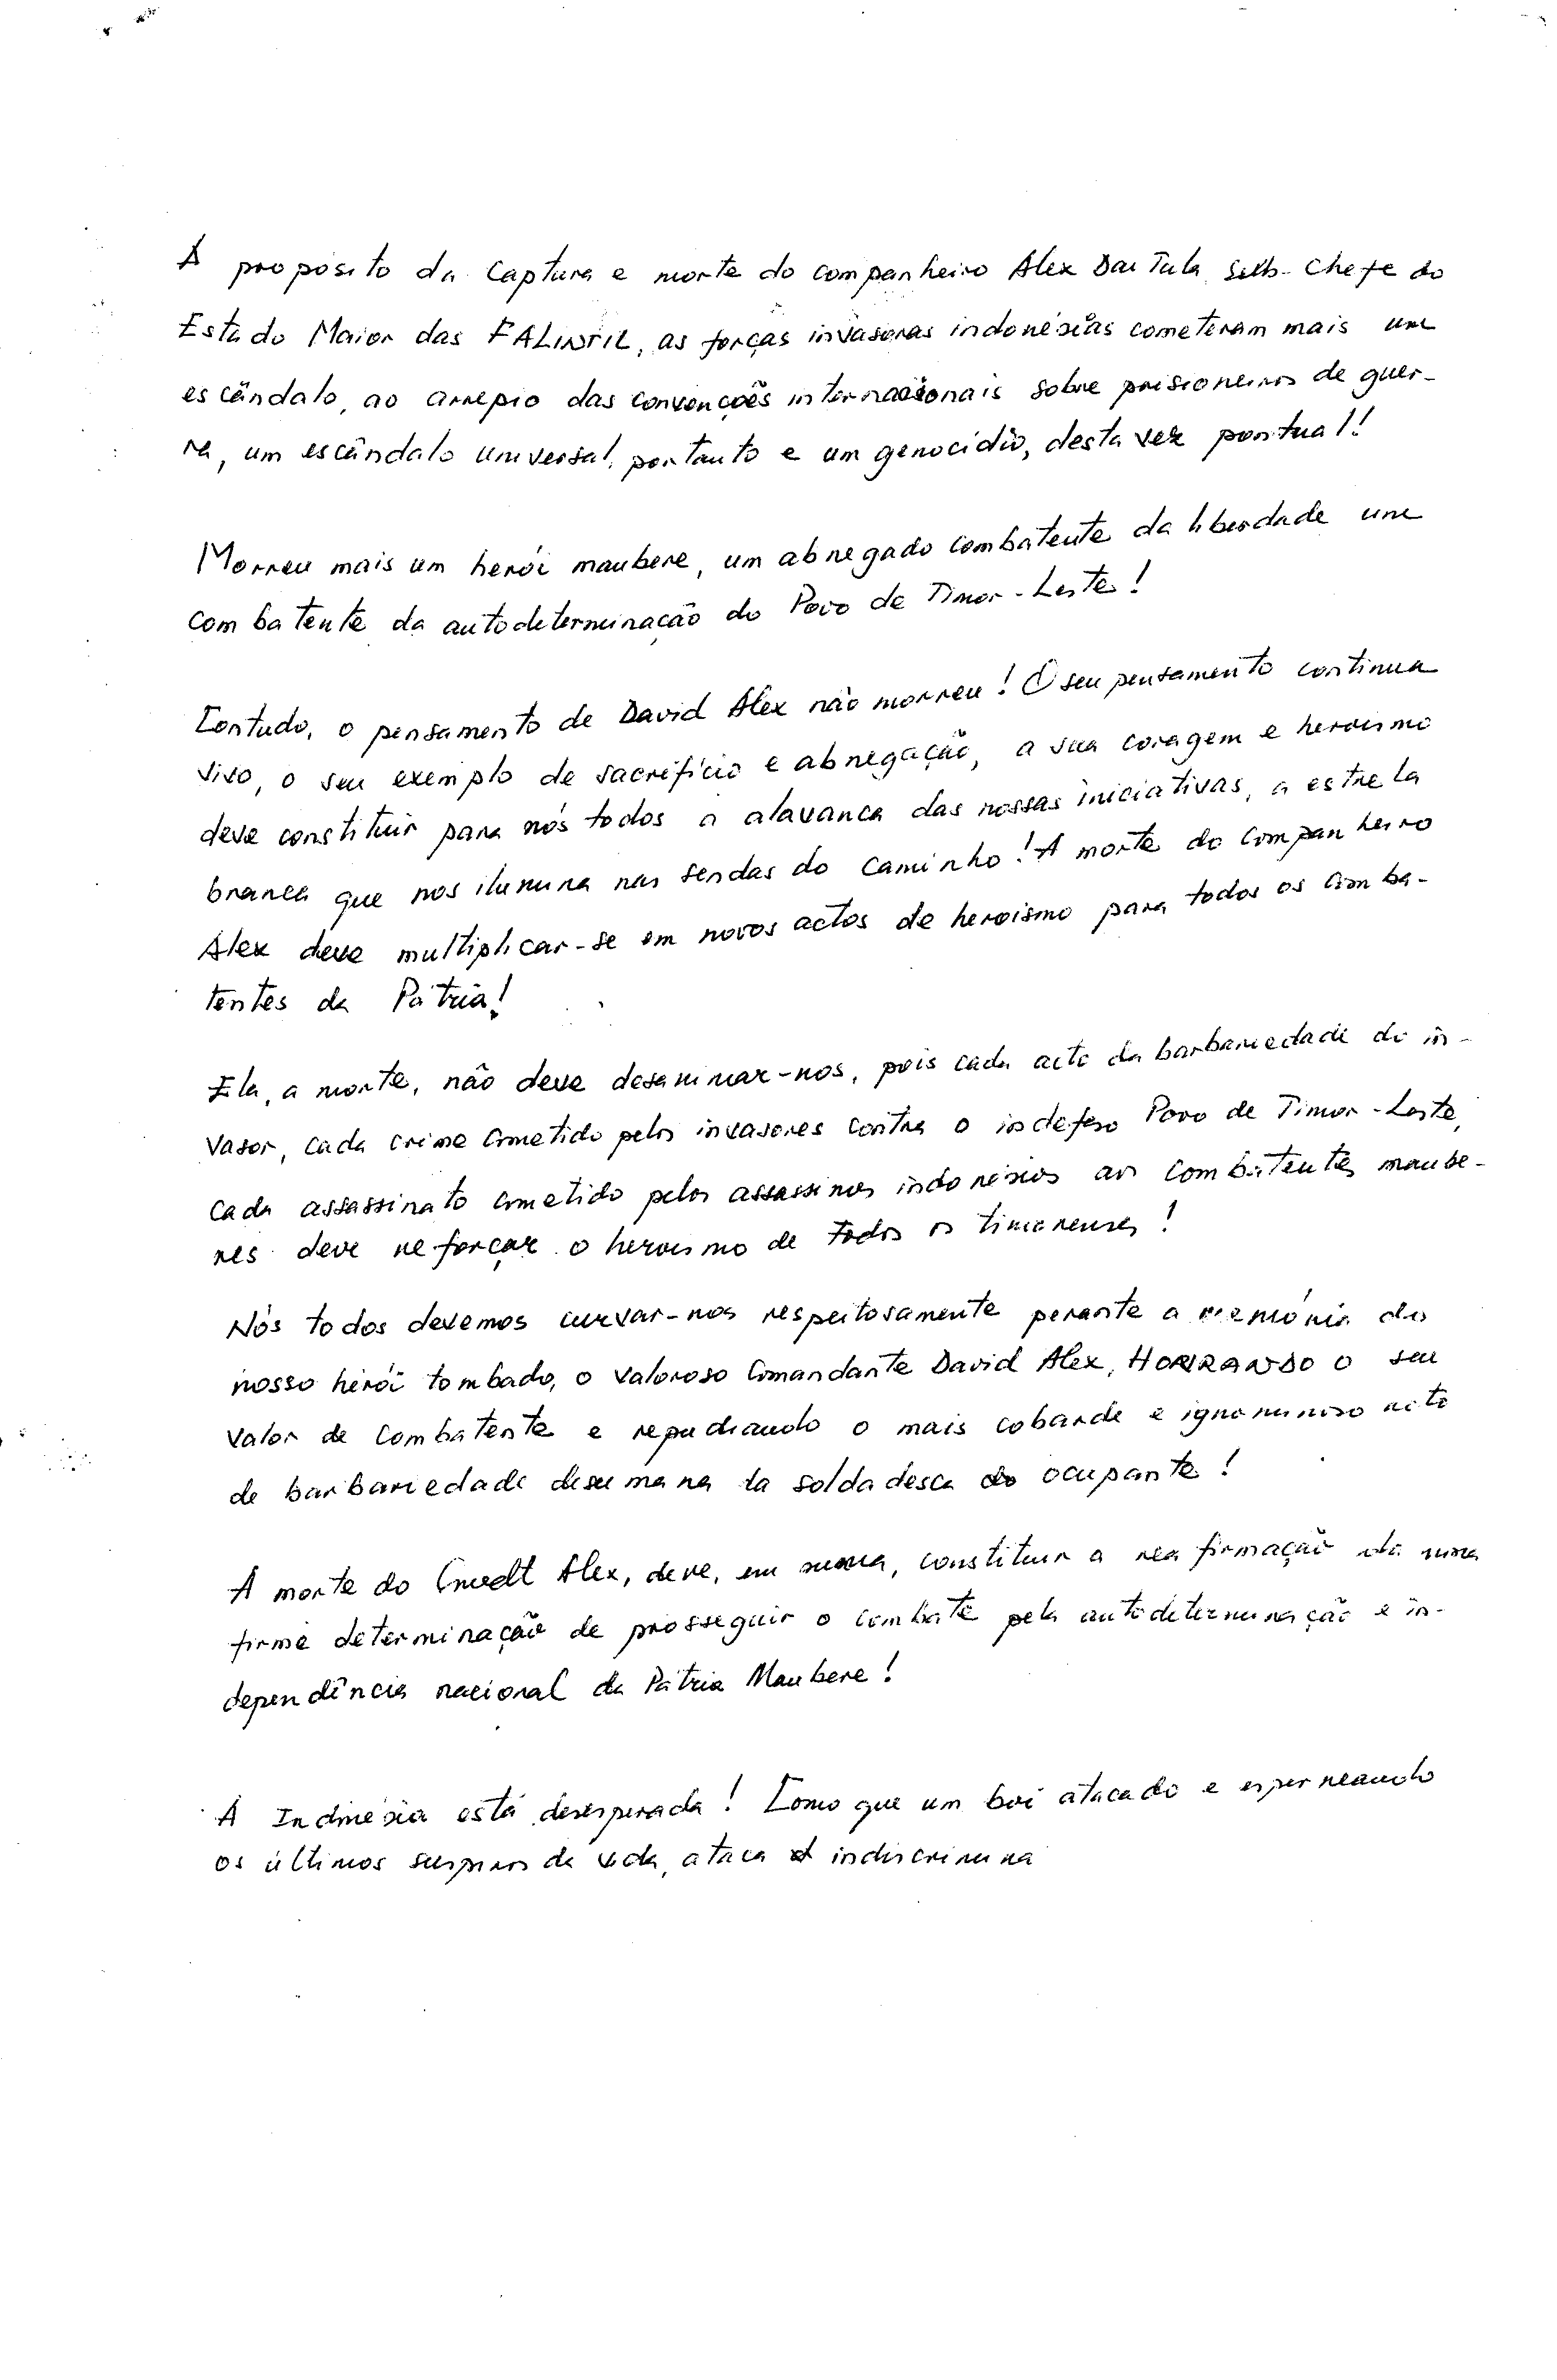 A proposito da Captura e morte do companheiro Alex Dai Tula, Sub-Chefe do
Estado Maior das FALINTIL, as forças invasoras indonésias cometeram mais um
escândalo, ao arrepio das convenções internacionais sobre prisioneiros de guer-
ra, um escândalo universal, portanto e um genocídio, desta vez pontual!
Morreu mais um herói maubere, um abnegado combatente da liberdade um
combatente da autodeterminação do Povo de Timor-Leste!
Contudo, o pensamento de David Alex não morreu! O seu pensamento continua
vivo, o seu exemplo de sacrifício e abnegação, a sua coragem e heroismo
deve constituir para nós todos a alavanca das nossas iniciativas, a estrela
branca que nos ilumina nas sendas do caminho! A morte do companheiro
Alex deve multiplicar-se em novos actos de heroismo para todos os comba-
tentes da Pátria!
Ela, a morte, não deve desanimar-nos, pois cada acto da barbariedade do in-
vasor, cada crime cometido pelos invasores contra o indefeso Povo de Timor-Leste,
cada assassinato cometido pelos assassinos indonésios aos combatentes maube-
res deve reforçar o heroismo de todos os timorenses!
Nós todos devemos curvar-nos respeitosamente perante a memória do
nosso herói tombado, o valoroso Comandante David Alex, HONRANDO o seu
valor de combatente e repudiando o mais cobarde e ignominioso acto
de barbariedade desumana da soldadesca do ocupante!
A morte do Cmdt Alex, deve, em suma, constituir a reafirmação da nossa
firme determinação de prosseguir o combate pela autodeterminação e in-
dependência nacional da Pátria Maubere!
A Indonésia está desesperada! Como que um boi atacado e esperneando
os últimos suspiros da vida, ataca indiscrimina